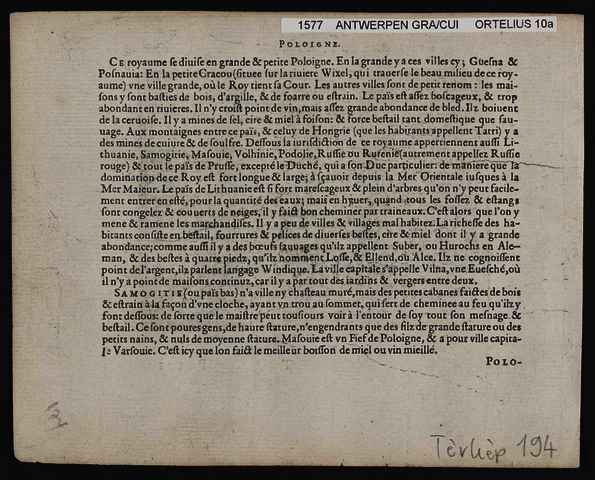 1577 ANTWERPEN GRA/CUI ORTELIUS 10a
POLOIGNE.
CE royaume se diuise en grande & petite Poloigne. En la grande y a ces villes cy; Guesna &
Posnauia: En la petite Cracou (situee sur la riuiere Wixel, qui trauerse le beau milieu de ce roy-
aume) vne ville grande, où le Roy tient sa Cour. Les autres villes sont de petit renom: les mai-
sons y sont basties de bois, d'argille, & de foarre ou estrain. Le païs est assez boscageux, & trop
abondant en riuieres. Il n'y croist point de vin, mais assez grande abondance de bled. Ilz boiuent
de la ceruoise. Il y a mines de sel, cire & miel à foison: & force bestail tant domestique que sau-
uage. Aux montaignes entre ce païs, & celuy de Hongrie (que les habitants appellent Tatri) y a
des mines de cuiure & de soulfre. Dessous la iurisdiction de ce royaume appertiennent aussi Li-
thuanie, Samogitie, Masouie, Volhinie, Podolie, Russie ou Rusenie (autrement appellez Russie
rouge) & tout le païs de Prusse, excepté le Duché, qui a son Duc particulier: de maniere que la
domination de ce Roy est fort longue & large; à sçauoir depuis la Mer Orientale iusques à la
Mer Maieur. Le païs de Lithuanie est si fort marescageux & plein d'arbres qu'on n'y peut facile-
ment entrer en esté, pour la quantité des eaux; mais en hyuer, quand tous les fossez & estangs
sont congelez & couuerts de neiges, il y faict bon cheminer par traineaux. C'est alors que l'on y
mene & ramene les marchandises. Il y a peu de villes & villages mal habitez. La richesse des ha-
bitants consiste en bestail, fourrures & pelices de diuerses bestes, cire & miel dont il y a grande
abondance; comme aussi il y a des bœufs sauuages qu'ilz appellent Suber, ou Hurochs en Ale-
man, & des bestes à quatre piedz, qu'ilz nomment Losse, & Ellend, où Alce. Ilz ne cognoissent
point de l'argent, ils parlent langage Windique. La ville capitale s'appelle Vilna, vne Euesché, où
il n'y a point de maisons continuz, car il y a par tout des iardins & vergers entre deux.
SAMOGITIE (ou païs bas) n'a ville ny chasteau muré, mais des petites cabanes faictes de bois
& estrain à la façon d'vne cloche, ayant vn trou au sommet, qui sert de cheminee au feu qu'ilz y
font dessous: de sorte que le maistre peut tousiours voir à l'entour de soy tout son mesnage &
bestail. Ce sont poures gens, de haute stature, n'engendrants que des filz de grande stature ou des
petits nains, & nuls de moyenne stature. Masouie est vn Fief de Poloigne, & a pour ville capita-
le Varsouie. C'est icy que lon faict le meilleur boisson de miel ou vin mieillé.
POLO-
194